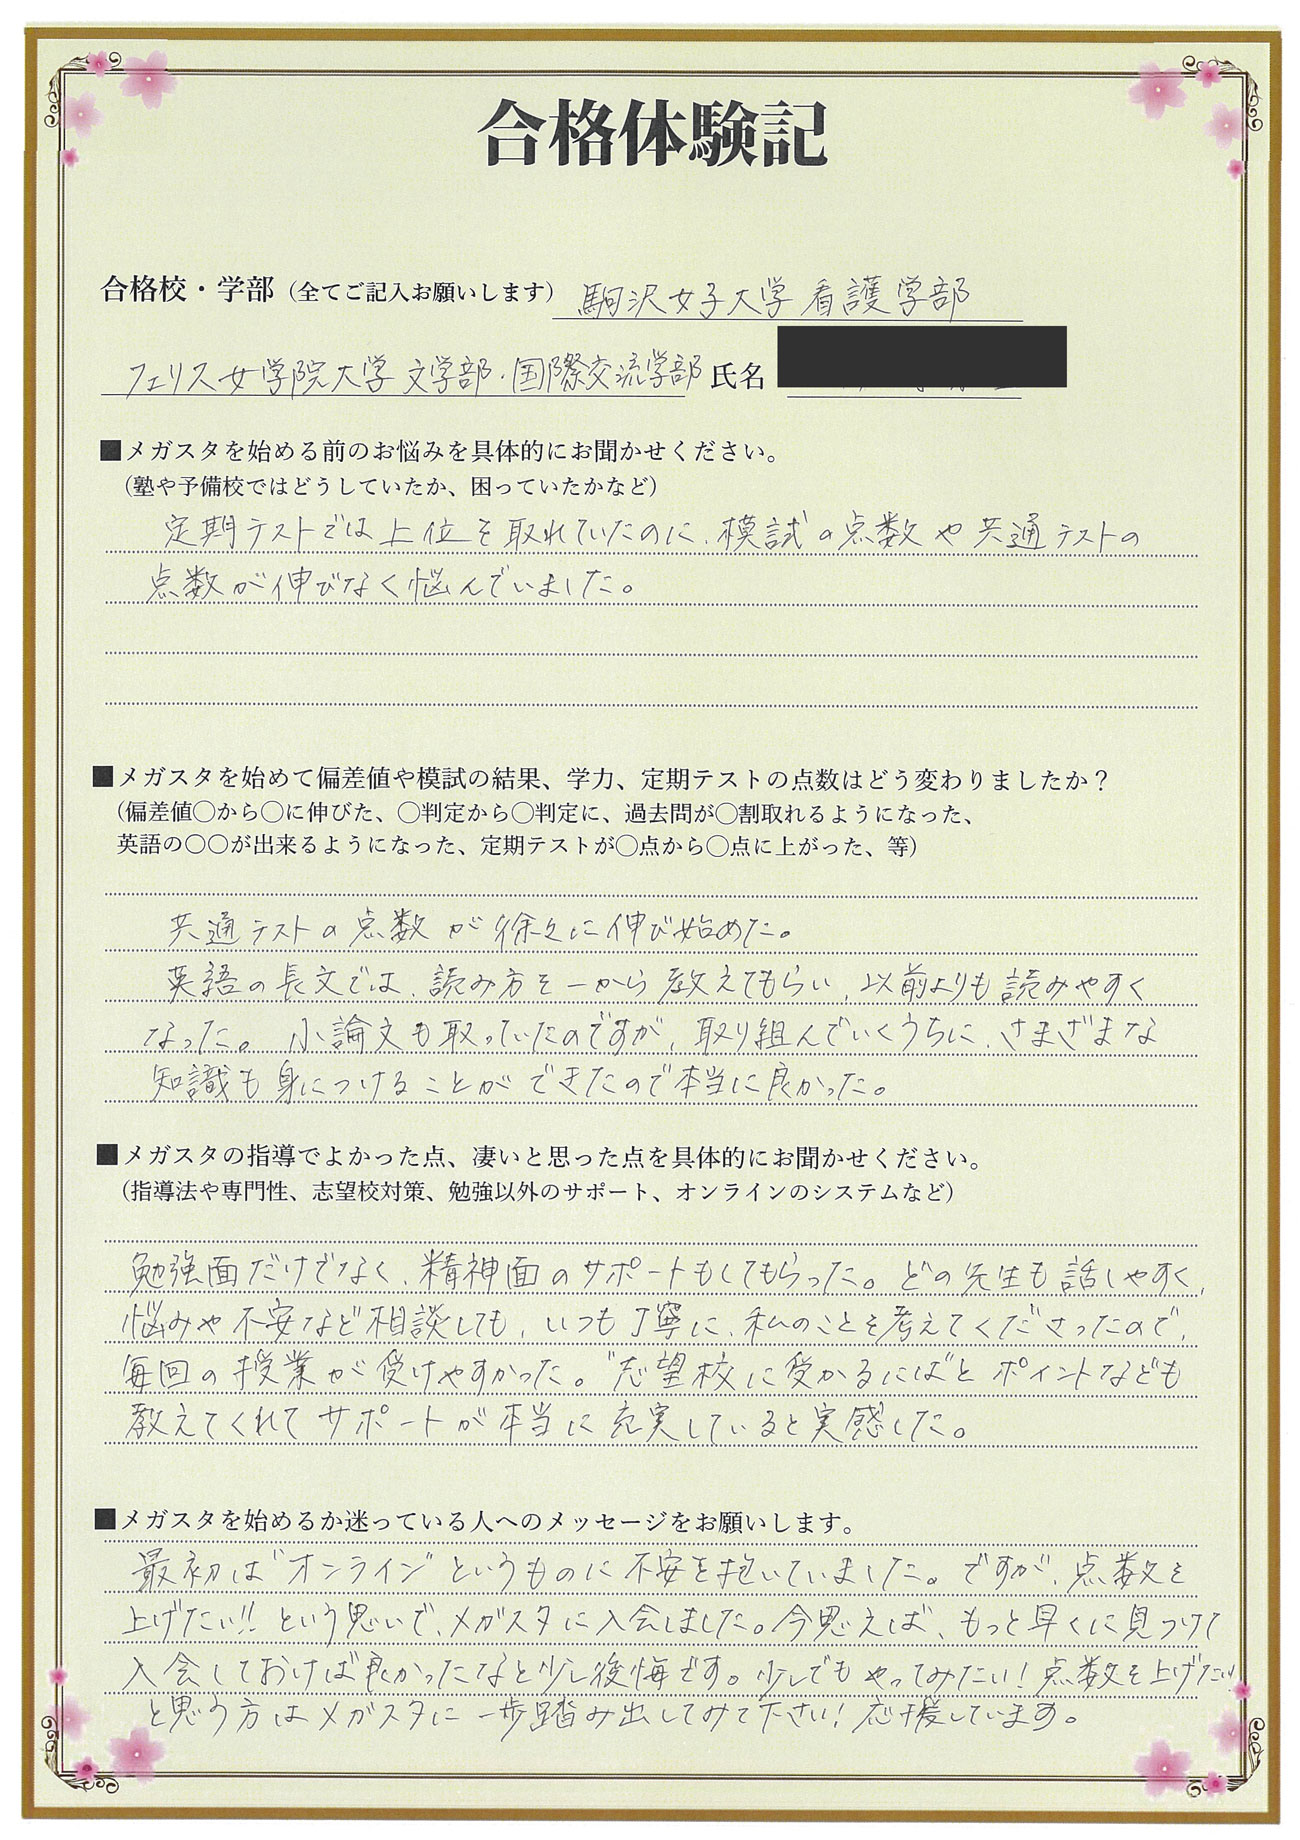 合格体験記
合格校・学部（全てご記入お願いします） 駒沢女子大学 看護学部
フェリス女学院大学 文学部・国際交流学部 氏名
■メガスタを始める前のお悩みを具体的にお聞かせください。
（塾や予備校ではどうしていたか、困っていたかなど）
定期テストでは上位を取れていたのに、模試の点数や共通テストの
点数が伸びなく悩んでいました。
■メガスタを始めて偏差値や模試の結果、学力、定期テストの点数はどう変わりましたか？
（偏差値〇から〇に伸びた、〇判定から〇判定に、過去問が〇割取れるようになった、
英語の〇〇が出来るようになった、定期テストが〇点から〇点に上がった、等）
共通テストの点数が徐々に伸び始めた。
英語の長文では、読み方を一から教えてもらい、以前よりも読みやすく
なった。小論文も取っていたのですが、取り組んでいくうちに、さまざまな
知識も身につけることができたので本当に良かった。
■メガスタの指導でよかった点、凄いと思った点を具体的にお聞かせください。
（指導法や専門性、志望校対策、勉強以外のサポート、オンラインのシステムなど）
勉強面だけでなく、精神面のサポートもしてもらった。どの先生も話しやすく、
悩みや不安など相談しても、いつも丁寧に、私のことを考えてくださったので、
毎回の授業が受けやすかった。"志望校に受かるには"と ポイントなども
教えてくれてサポートが本当に充実していると実感した。
■メガスタを始めるか迷っている人へのメッセージをお願いします。
最初は"オンライン"というものに不安を抱いていました。ですが、点数を
上げたい!! という思いで、メガスタに入会しました。今思えば、もっと早くに見つけて
入会しておけば良かったなと少し後悔です。少しでもやってみたい！点数を上げたい
と思う方はメガスタに一歩踏み出してみて下さい！応援しています。